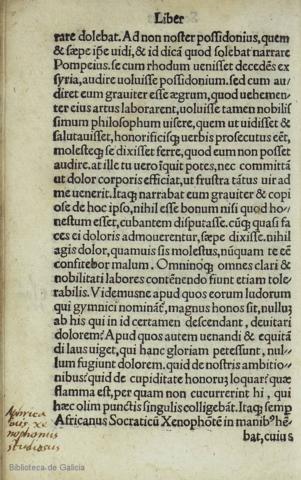 Liber
rare dolebat. At non noster possidonius, quem
& sæpe ip̃e uidi, & id dicã quod solebat narrare
Pompeius. se cum rhodum uenisset decedẽs ex
syria, audire uoluisse possidonium. sed cum au/
diret eum grauiter esse ægrum, quod uehemen/
ter eius artus laborarent, uoluisse tamen nobilis
simum philosophum uisere, quem ut uidisset &
salutauisset, honorificisq; uerbis prosecutus eẽt,
molesteq; se dixisset ferre, quod eum non posset
audire. at ille tu uero ĩquit potes, nec committã
ut dolor corporis efficiat, ut frustra tãtus uir ad
me uenerit. Itaq; narrabat eum grauiter & copi
ose de hoc ipso, nihil esse bonum nisi quod ho/
nestum esset, cubantem disputasse. cũq; quasi fa
ces ei doloris admouerentur, sæpe dixisse. nihil
agis dolor, quamuis sis molestus, nũquam te eẽ
confitebor malum. Omninoq; omnes clari &
nobilitati labores contẽnendo fiunt etiam tole/
rabilis. Videmusne apud quos eorum ludorum
qui gymnici nominãt́, magnus honos sit, nulluʒ
ab his qui in id certamen descendant, deuitari
dolorem? Apud quos autem uenandi & equitã
di laus uiget, qui hanc gloriam petessunt, nul/
lum fugiunt dolorem. quid de nostris ambitio/
nibus? quid de cupiditate honoruʒ loquar? quæ
flamma est, per quam non cucurrerint hi, qui
hæc olim punctis singulis colligebãt. Itaq; semp̃
Africanus Socraticũ Xenophõtẽ in manibꝰ he/
bat, cuius
Aphrica
nus xe
nophontis
studiosus
Biblioteca de Galicia